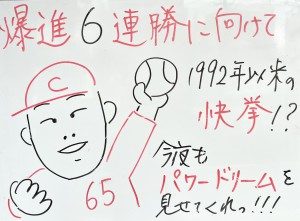 爆進6連勝に向けて
1992年以来の
快挙!?
C
65
今夜も
パワードリームを
見せてくれっ!!!